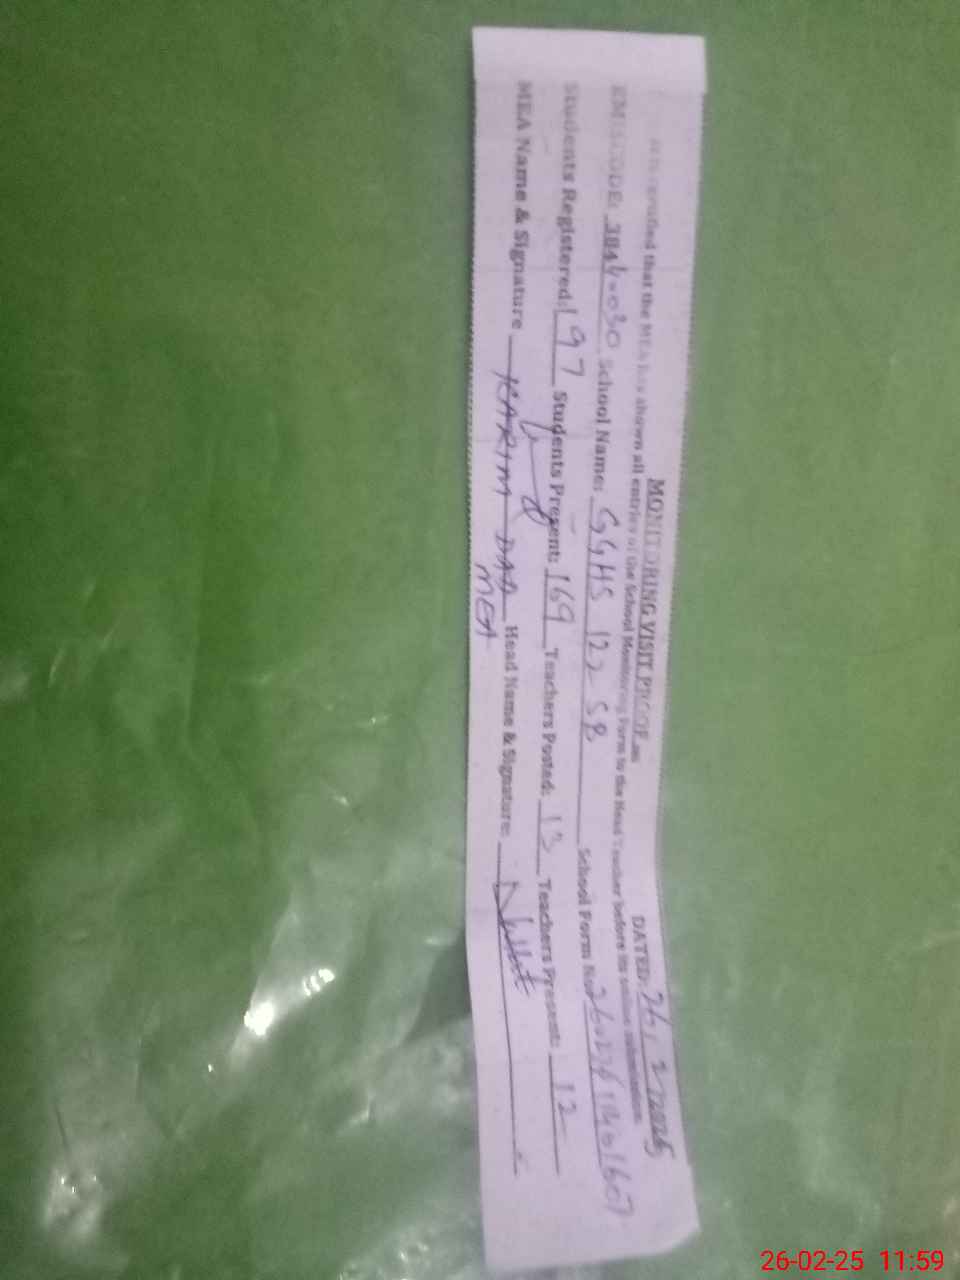 MONITORING VISIT PROOF
DATED: 26, 2 /2025
It is certified that the MEA has shown all entries of the School Monitoring Form to the Head Teacher before its online submission.
EMIS CODE: 3844-030 School Name: GGHS 122 SB School Form No:
Students Registered: 197 Students Present: 169 Teachers Posted: 13 Teachers Present: 12
MEA Name & Signature KARIM DAD Head Name & Signature:
MEA
26-02-25 11:59